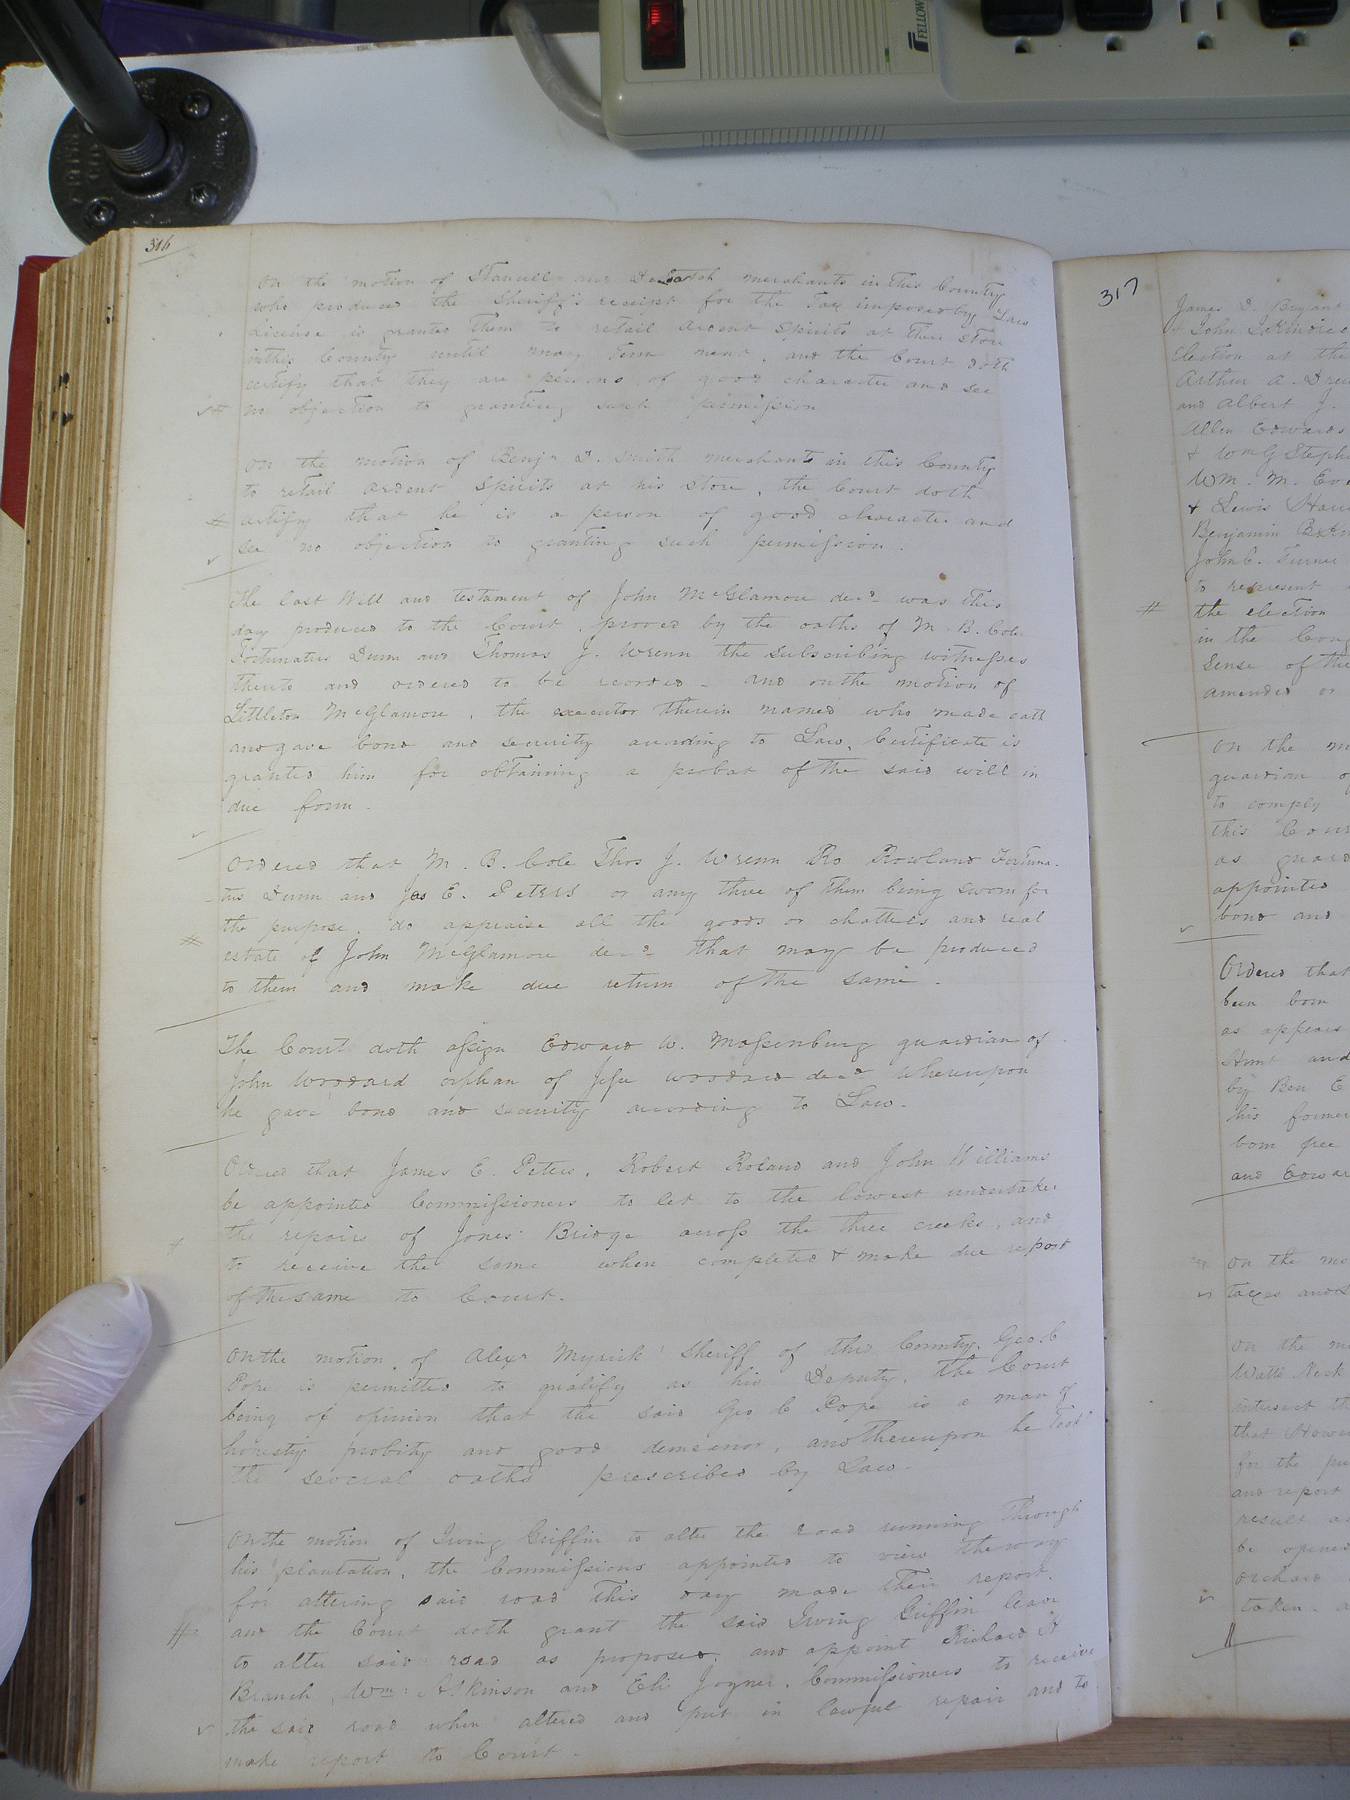 FELLOW
316
On the motion of Stancell and merchants in this County
who produced the Sheriff's receipt for the Tax imposed by Law
License is granted them to retail ardent spirits at their Store
in this County until may Term next, and the Court doth
certify that they are persons of good character and see
no objection to granting such permission
On the motion of Benjn D. Smith merchant in this County
to retail ardent Spirits at his store, the Court doth
certify that he is a person of good character and
see no objection to granting such permission.
The last Will and testament of John McGlamore decd was this
day produced to the Court, proved by the oaths of M. B. Cole
Fortunatus Dunn and Thomas J. Wrenn the subscribing witnesses
thereto and ordered to be recorded - and on the motion of
Littleton McGlamore, the executor therein named who made oath
and gave bond and security according to Law, Certificate is
granted him for obtaining a probat of the said will in
due form.
Ordered that M. B. Cole Thos J. Wrenn Ro Rowland Fortuna-
tus Dunn and Jas E. Peters or any three of them being sworn for
the purpose, do appraise all the goods or chattels and real
estate of John McGlamore decd that may be produced
to them and make due return of the same.
The Court doth assign Edward W. Massenburg guardian of
John Woodard orphan of Jesse Woodard decd whereupon
he gave bond and security according to Law.
Ordered that James E. Peters, Robert Roland and John Williams
be appointed Commissioners to let to the lowest undertaker
the repairs of Jones' Bridge across the three creeks, and
to receive the same when completed & make due report
of the same to Court.
On the motion of Alexr Myrick Sheriff of this County, Geo C
Pope is permitted to qualify as his Deputy, the Court
being of opinion that the said Geo C Pope is a man of
honesty probity and good demeanor, and thereupon he took
the several oaths prescribed by Law.
On the motion of Irving Griffin to alter the road running through
his plantation, the Commissioners appointed to view the way
for altering said road this day made their report,
and the Court doth grant the said Irving Griffin leave
to alter said road as proposed, and appoint Richard H
Branch, Wm Atkinson and Eli Joyner, Commissioners to receive
the said road when altered and put in lawful repair and to
make report to Court.
317
James D. Bryant
& John
Election at the
Arthur A.
and Albert J.
Allen Edwards
& Wm G Steph
Wm. M.
& Lewis
Benjamin
John C. Turner
to represent
the election
in the Cong
Sense of the
amended or
On the m
guardian of
to comply
this Cour
as guard
appointed
bond and
Ordered that
been born
as appears
Hunt and
by Ben E
his former
born free
and Edwar
On the mo
taxes and
On the m
Watts Neck
intersect th
that
for the pu
and report
result a
be opened
orchard
taken. a